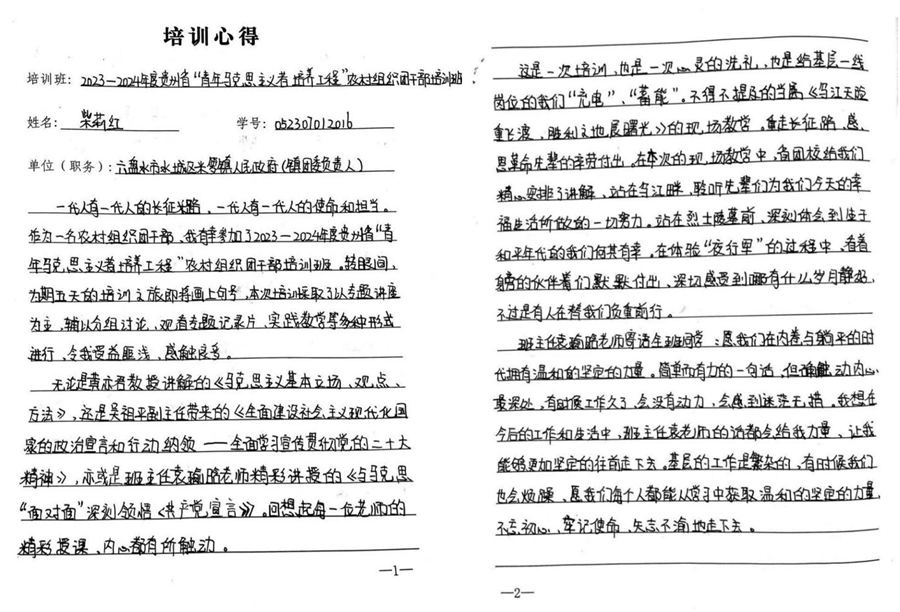 培训心得
培训班：2023—2024年度贵州省“青年马克思主义者培养工程”农村组织团干部培训班
姓名：柴莉红 学号：052307012016
单位（职务）：六盘水市水城区米箩镇人民政府（镇团委负责人）
一代人有一代人的长征路，一代人有一代人的使命和担当。
作为一名农村组织团干部，我有幸参加了2023—2024年度贵州省“青
年马克思主义者培养工程”农村组织团干部培训班。转眼间，
为期五天的培训之旅即将画上句号，本次培训采取了以专题讲座
为主，辅以分组讨论、观看专题记录片、实践教学等多种形式
进行，令我受益匪浅，感触良多。
无论是黄亦君教授讲解的《马克思主义基本立场、观点、
方法》，还是吴祖平副主任带来的《全面建设社会主义现代化国
家的政治宣言和行动纲领——全面学习宣传贯彻党的二十大
精神》，亦或是班主任袁瑜鸥老师精彩讲授的《与马克思
“面对面”深刻领悟《共产党宣言》》。回想起每一位老师的
精彩授课，内心都有所触动。
—1—
这是一次培训，也是一次心灵的洗礼，也是给基层一线
岗位的我们“充电”、“蓄能”。不得不提及的当属《乌江天险
重飞渡，胜利之地展曙光》的现场教学。重走长征路，感
思革命先辈的辛劳付出。在本次的现场教学中，省团校给我们
精心安排了讲解，站在乌江畔，聆听先辈们为我们今天的幸
福生活所做的一切努力。站在烈士陵墓前，深刻体会到生于
和平年代的我们何其有幸。在体验“夜行军”的过程中，看着
身旁的伙伴们默默付出，深切感受到哪有什么岁月静好，
不过是有人在替我们负重前行。
班主任袁瑜鸥老师寄语全班同学：愿我们在内卷与躺平的时
代拥有温和的坚定的力量。简单而有力的一句话，但确触动内心
最深处，有时候工作久了，会没有动力，会感到迷茫无措。我想在
今后的工作和生活中，班主任袁老师的话都会给我力量，让我
能够更加坚定的往前走下去。基层的工作是繁杂的，有时候我们
也会烦躁，愿我们每个人都能从学习中获取温和的坚定的力量，
不忘初心、牢记使命，矢志不渝地走下去。
—2—